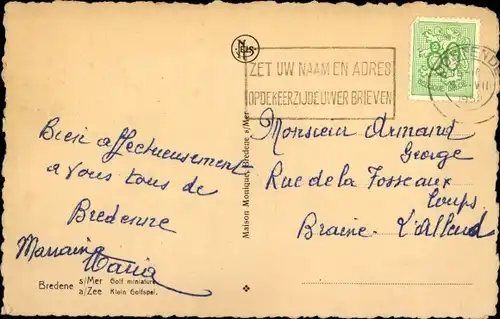 NELS
ZET UW NAAM EN ADRES
OP DE KEERZIJDE UWER BRIEVEN
Bien affectueusement
à vous tous de
Bredenne
Marraine
Maria
Monsieur Armand
George
Rue de la Fosseaux
Loups
Braine-L'Alleud
Maison Monique, Bredene s/Mer
Bredene s/Mer Golf miniature.
a/Zee Klein Golfspel.